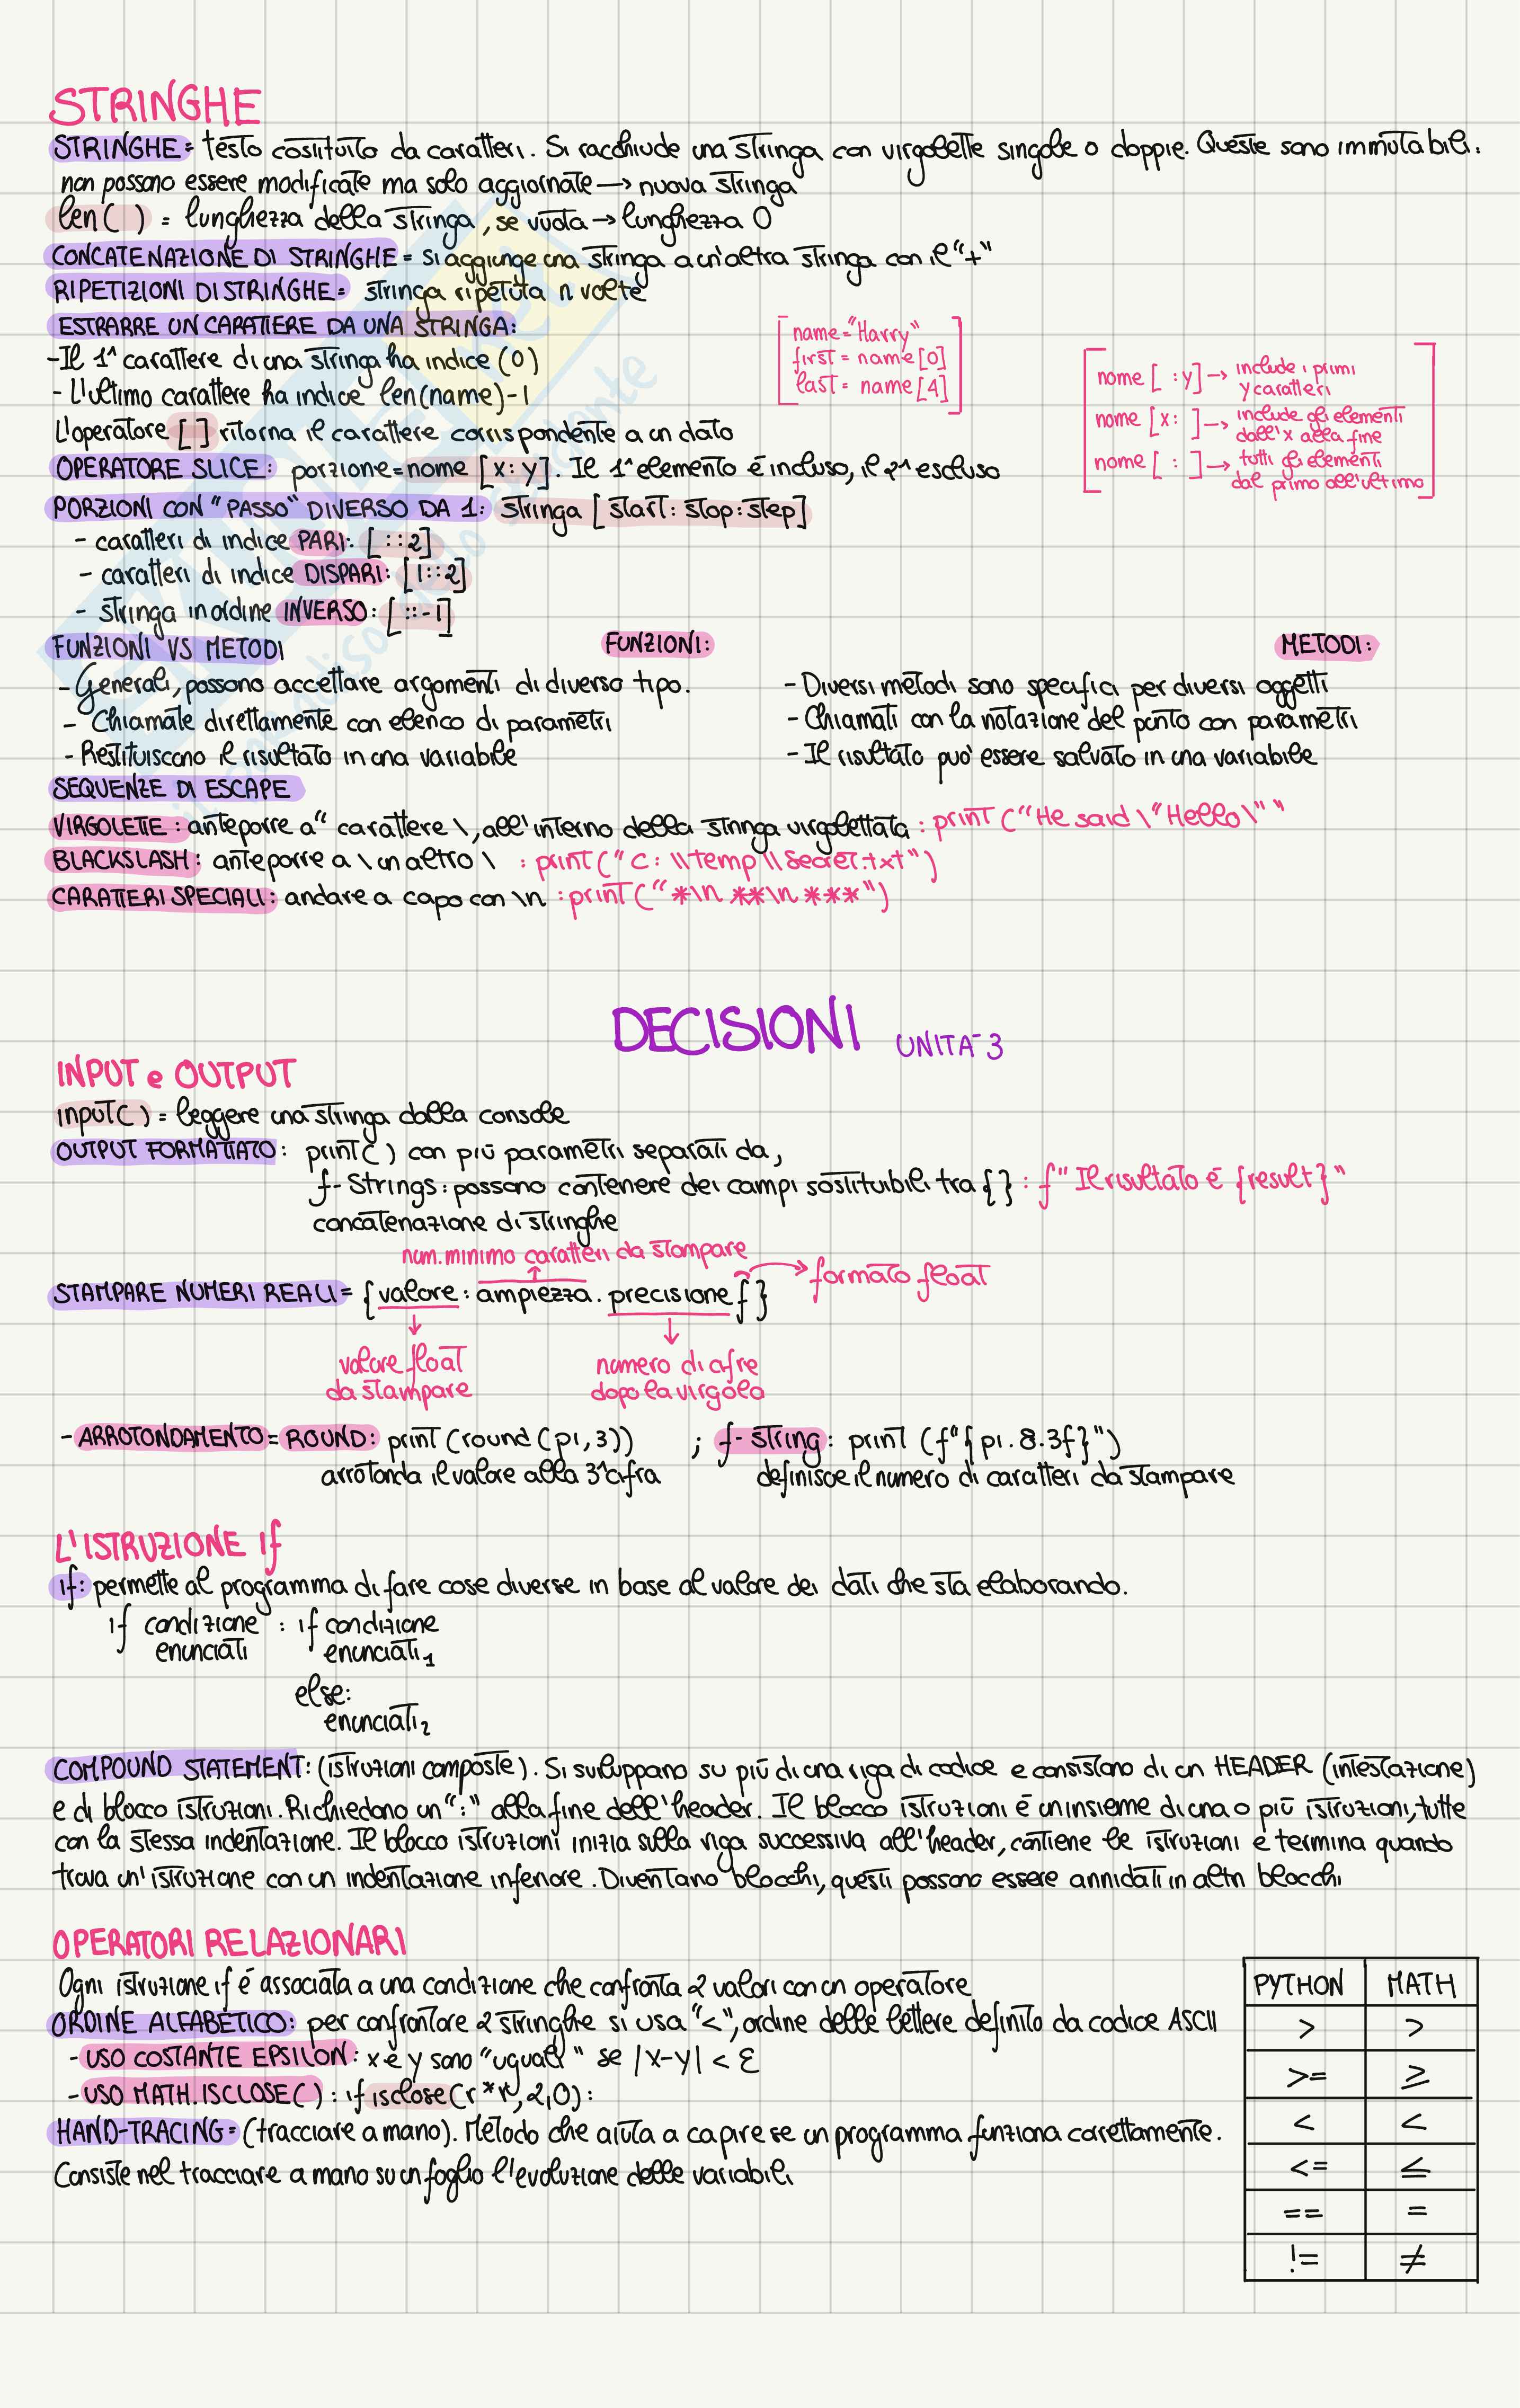 STRINGHE
STRINGHE = testo costituito da caratteri. Si racchiude una stringa con virgolette singole o doppie. Queste sono immutabili:
non possono essere modificate ma solo aggiornate → nuova stringa
len( ) = lunghezza della stringa, se vuota → lunghezza 0
CONCATENAZIONE DI STRINGHE = si aggiunge una stringa a un'altra stringa con il "+"
RIPETIZIONI DI STRINGHE = stringa ripetuta n volte
ESTRARRE UN CARATTERE DA UNA STRINGA:
- Il 1^ carattere di una stringa ha indice (0)
- L'ultimo carattere ha indice len(name)-1
name = "Harry"
first = name [0]
last = name [4]
nome [ :y] → include i primi
y caratteri
nome [x: ] → include gli elementi
dall'x alla fine
nome [ : ] → tutti gli elementi
dal primo all'ultimo
L'operatore [ ] ritorna il carattere corrispondente a un dato
OPERATORE SLICE: porzione = nome [x:y]. Il 1^ elemento è incluso, il 2^ escluso
PORZIONI CON "PASSO" DIVERSO DA 1: stringa [start:stop:step]
- caratteri di indice PARI: [::2]
- caratteri di indice DISPARI: [1::2]
- stringa in ordine INVERSO: [::-1]
FUNZIONI VS METODI FUNZIONI: METODI:
- Generali, possono accettare argomenti di diverso tipo. - Diversi metodi sono specifici per diversi oggetti
- Chiamate direttamente con elenco di parametri - Chiamati con la notazione del punto con parametri
- Restituiscono il risultato in una variabile - Il risultato può essere salvato in una variabile
SEQUENZE DI ESCAPE
VIRGOLETTE: anteporre a " carattere \, all'interno della stringa virgolettata: print ("He said \"Hello\" "
BLACKSLASH: anteporre a \ un altro \ : print("C:\\temp\\secret.txt")
CARATTERI SPECIALI: andare a capo con \n : print("*\n **\n ***")
DECISIONI UNITÀ 3
INPUT e OUTPUT
input( ) = leggere una stringa dalla console
OUTPUT FORMATTATO: print( ) con più parametri separati da ,
f-Strings: possono contenere dei campi sostituibili tra { } : f"Il risultato è {result}"
concatenazione di stringhe
num. minimo caratteri da stampare
STAMPARE NUMERI REALI = {valore : ampiezza . precisione f} → formato float
valore float numero di cifre
da stampare dopo la virgola
- ARROTONDAMENTO = ROUND: print (round (pi, 3)) ; f-string: print (f"{pi.8.3f}")
arrotonda il valore alla 3^ cifra definisce il numero di caratteri da stampare
L'ISTRUZIONE if
if: permette al programma di fare cose diverse in base al valore dei dati che sta elaborando.
if condizione : if condizione
enunciati enunciati1
else:
enunciati2
COMPOUND STATEMENT: (istruzioni composte). Si sviluppano su più di una riga di codice e consistono di un HEADER (intestazione)
e di blocco istruzioni. Richiedono un ":" alla fine dell'header. Il blocco istruzioni è un insieme di una o più istruzioni, tutte
con la stessa indentazione. Il blocco istruzioni inizia sulla riga successiva all'header, contiene le istruzioni e termina quando
trova un'istruzione con un indentazione inferiore. Diventano blocchi, questi possono essere annidati in altri blocchi
OPERATORI RELAZIONARI
Ogni istruzione if è associata a una condizione che confronta 2 valori con un operatore
ORDINE ALFABETICO: per confrontare 2 stringhe si usa "<", ordine delle lettere definito da codice ASCII
- USO COSTANTE EPSILON: x e y sono "uguali" se |x-y| < ε
- USO MATH.ISCLOSE( ) : if isclose(r*r, 2,0):
HAND-TRACING = (tracciare a mano). Metodo che aiuta a capire se un programma funziona corettamente.
Consiste nel tracciare a mano su un foglio l'evoluzione delle variabili
PYTHON MATH
> >
>= ≥
< <
<= ≤
== =
!= ≠